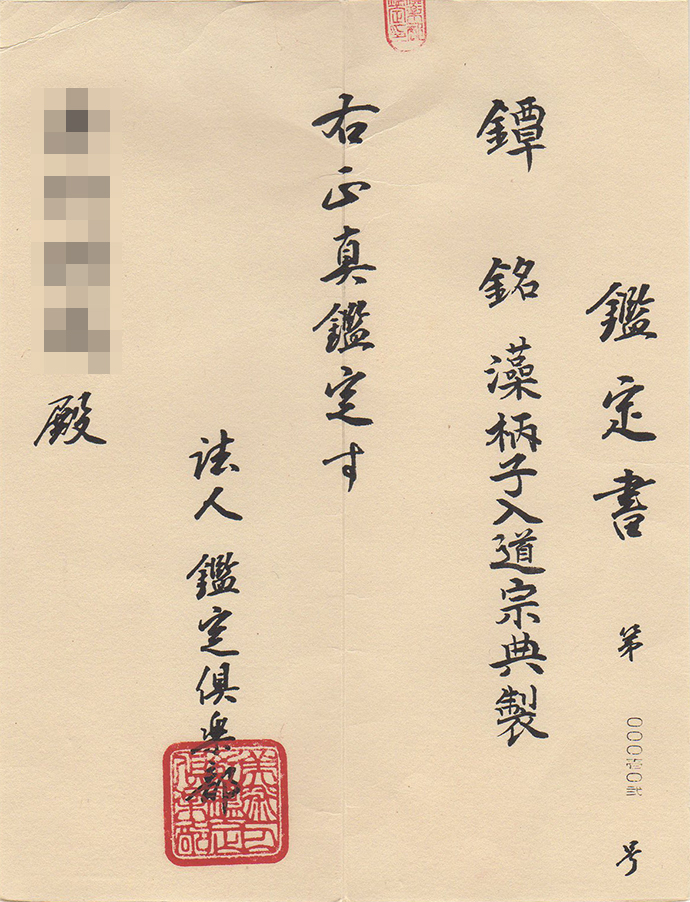 鑑定書 第 000壱0弐 号
鐔 銘 藻柄子入道宗典製
右正真鑑定す
法人 鑑定倶楽部
殿